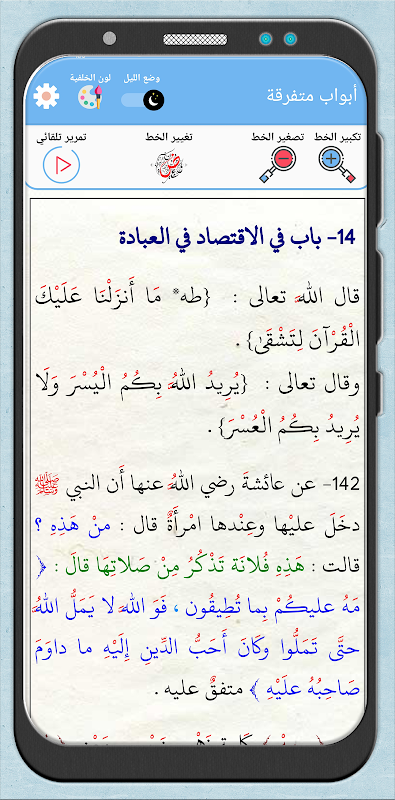 وضع الليل
لون الخلفية
أبواب متفرقة
تكبير الخط
تصغير الخط
تغيير الخط
تمرير تلقائي
14- باب في الاقتصاد في العبادة
قال اللهَ تعالى : {طه* مَا أَنزَلْنَا عَلَيْكَ
الْقُرْآنَ لِتَشْقَىٰ} .
وقال تعالى : {يُرِيدُ اللهُ بِكُمُ الْيُسْرَ وَلَا
يُرِيدُ بِكُمُ الْعُسْرَ} .
142- عن عائشةَ رضي اللهُ عنها أَن النبي ﷺ
دخَلَ عليْها وعِنْدها امْرأَةٌ قال : منْ هَذِهِ ؟
قالت : هَذِهِ فُلانَة تَذْكُرُ مِنْ صَلاتِهَا قالَ : ﴿
مَهُ عليكُمْ بِما تُطِيقُون ، فَوَ اللهَ لا يَمَلُّ اللهُ
حتَّى تَمَلُّوا وكَانَ أَحَبُّ الدِّينِ إِلَيْهِ ما داوَمَ
صَاحِبُهُ علَيْهِ ﴾ متفقٌ عليه .